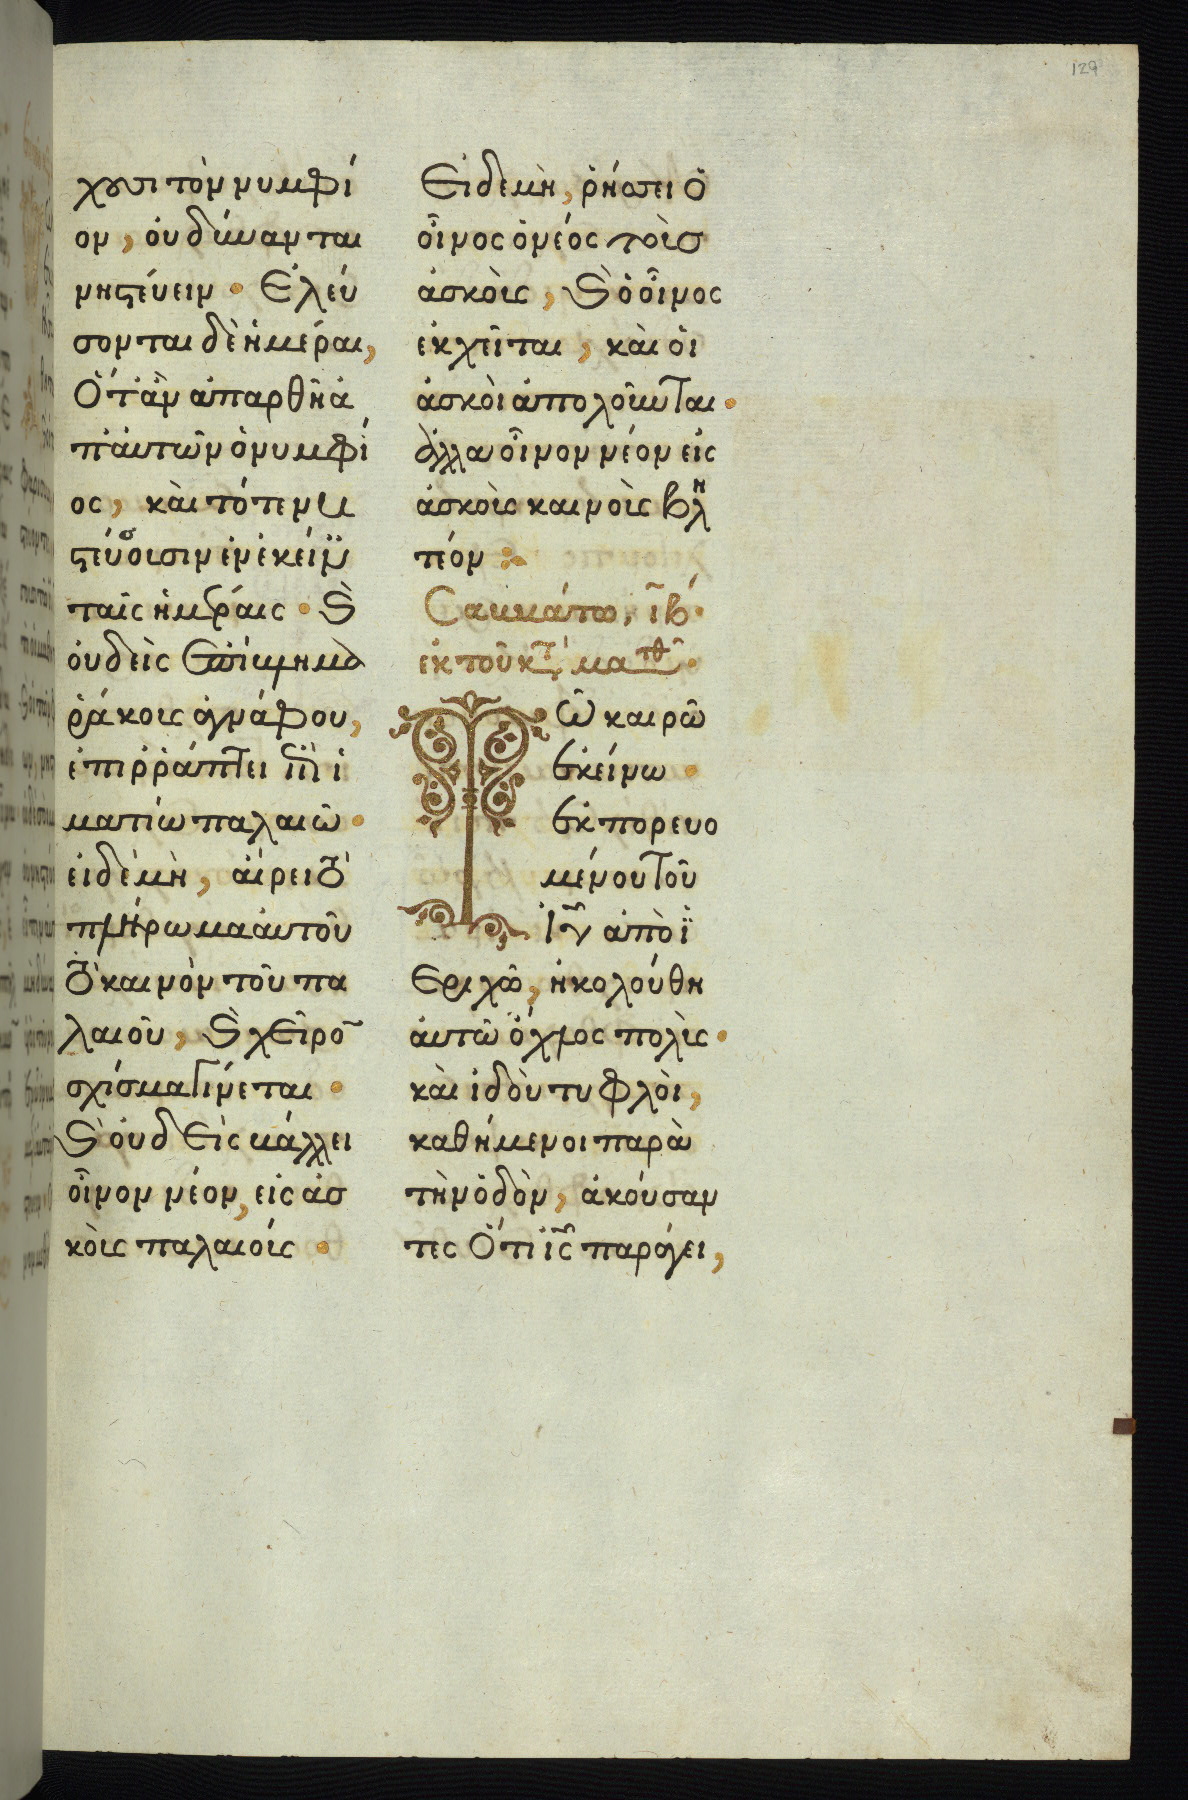 129
χουσι τὸν νυμφί
ον, οὐ δύνανται
νηστεύειν · Ἐλεύ
σονται δὲ ἡμέραι,
Ὅταν ἀπαρθῆ ἀ
π' αὐτῶν ὁ νυμφί
ος, καὶ τότε νη
στεύσουσιν ἐν ἐκείν
ταῖς ἡμέραις · Καὶ
οὐδεὶς ἐπίβλημα
ῥάκους ἀγνάφου,
ἐπιρράπτει ἐπὶ ἱ
ματίω παλαιῶ ·
εἰ δὲ μὴ, αἴρει τὸ
πλήρωμα αὐτοῦ
τὸ καινὸν τοῦ πα
λαιοῦ, καὶ χεῖρο
σχίσμα γίνεται ·
Καὶ οὐδεὶς βάλλει
οἶνον νέον, εἰς ἀσ
κοὺς παλαιούς ·
Εἰ δὲ μὴ, ῥήσσει ὁ
οἶνος ὁ νέος τοὺς
ἀσκοὺς, καὶ ὁ οἶνος
ἐκχεῖται, καὶ οἱ
ἀσκοὶ ἀπολοῦνται ·
ἀλλὰ οἶνον νέον εἰς
ἀσκοὺς καινοὺς βλη
τέον :
Σαββάτω, ιβ ·
ἐκ τοῦ κτ ματθ ·
Τῶ καιρῶ
ἐκείνω ·
ἐκπορευο
μένου τοῦ
ιυ ἀπὸ ϊ
εριχὼ, ἠκολούθη
αὐτῶ ὄχλος πολὺς ·
καὶ ἰδοὺ τυφλοὶ,
καθήμενοι παρὰ
τὴν ὁδὸν, ἀκούσαν
τες Ὅτι ις παράγει,